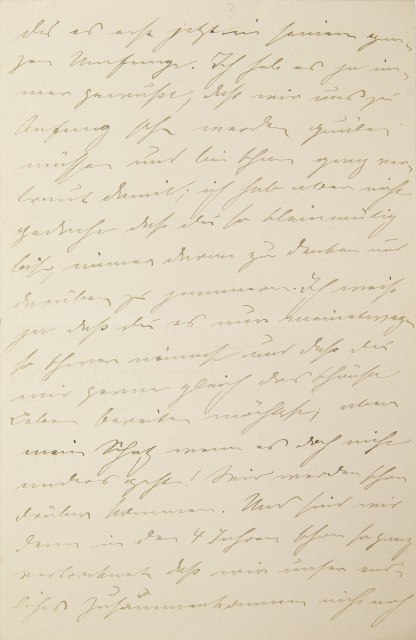 3
das es erst jetzt in seinem gan-
zen Umfange. Ich hab es ja im-
mer gewußt, daß wir uns zu
Anfang sehr werden quälen
müssen und bin schon ganz ver-
traut damit; ich hab aber nicht
gedacht daß du so kleinmütig
bist, immer daran zu denken und
darüber zu jammern. Ich weiß
ja daß du es nur meinetwegen
so schwer nimmst und daß du
mir gerne gleich das schönste
Leben bereiten möchtest, aber
mein Schatz wenn es doch nicht
anders geht! Wir werden schon
drüber kommen. Und sind wir
denn in den 4 Jahren schon so ganz
vertrocknet daß wir unser end-
liches Zusammenkommen nicht noch